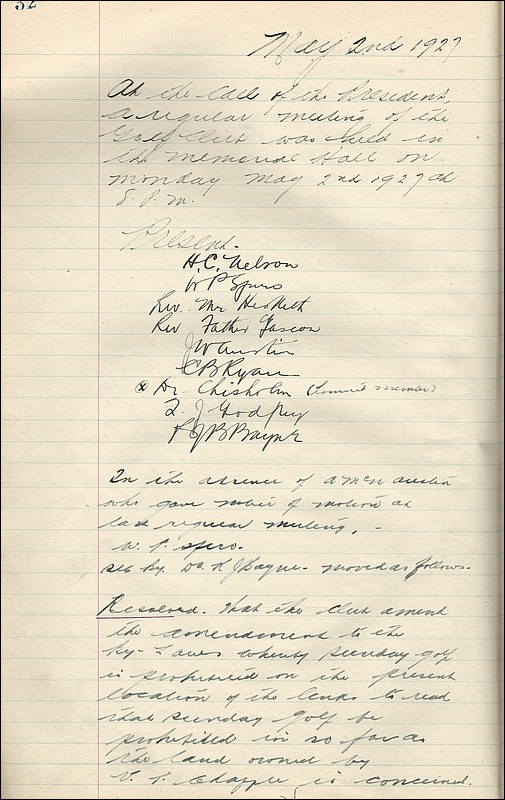 32
May 2nd 1927
At the call of the President,
a regular meeting of the
Golf Club was held in
the Memorial Hall on
Monday May 2nd 1927 at
8. P.M.
Present.
H.C. Nelson
W P Spero
Rev. Mr Hesketh
Rev Father Gascon
J W Austin
C B Ryan
Dr. Chisholm
J Godfrey
In the absence of Austin
who gave notice of motion at
last regular meeting, -
W. P. Spero.
sec by. Dr. moved as follows.
Resolved. that the club amend
the amendment to the
By-Laws whereby Sunday golf
is prohibited on the present
location of the links to read
that Sunday golf be
prohibited in so far as
the land owned by
is concerned.